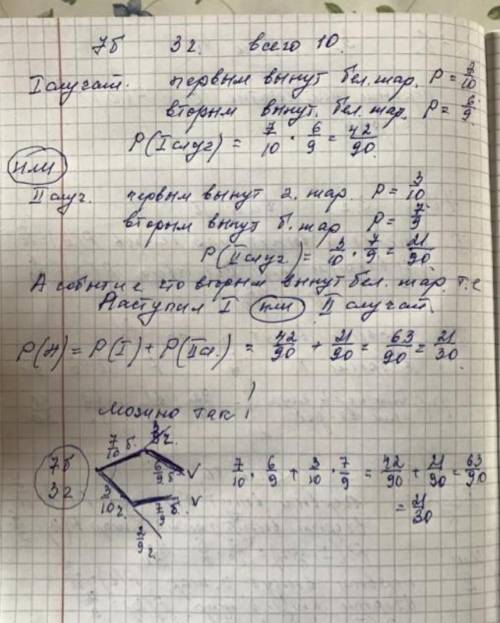 7б 3ч. всего 10.
I случай. первым вынут бел. шар. P = 7/10
вторым вынут. бел. шар. P = 6/9.
P(I случ) = 7/10 · 6/9 = 42/90.
или
II случ. первым вынут ч. шар. P = 3/10
вторым вынут б. шар P = 7/9
P(II случ.) = 3/10 · 7/9 = 21/90
А событие что вторым вынут бел. шар. т.е
Наступил I или II случай.
P(A) = P(I) + P(II сл.) = 42/90 + 21/90 = 63/90 = 21/30
Можно так!
7/10 б. 3/9 ч.
7б 6/9 б. v 7/10 · 6/9 + 3/10 · 7/9 = 42/90 + 21/90 = 63/90
3ч 3/10 ч. 7/9 б. v = 21/30
2/9 ч.